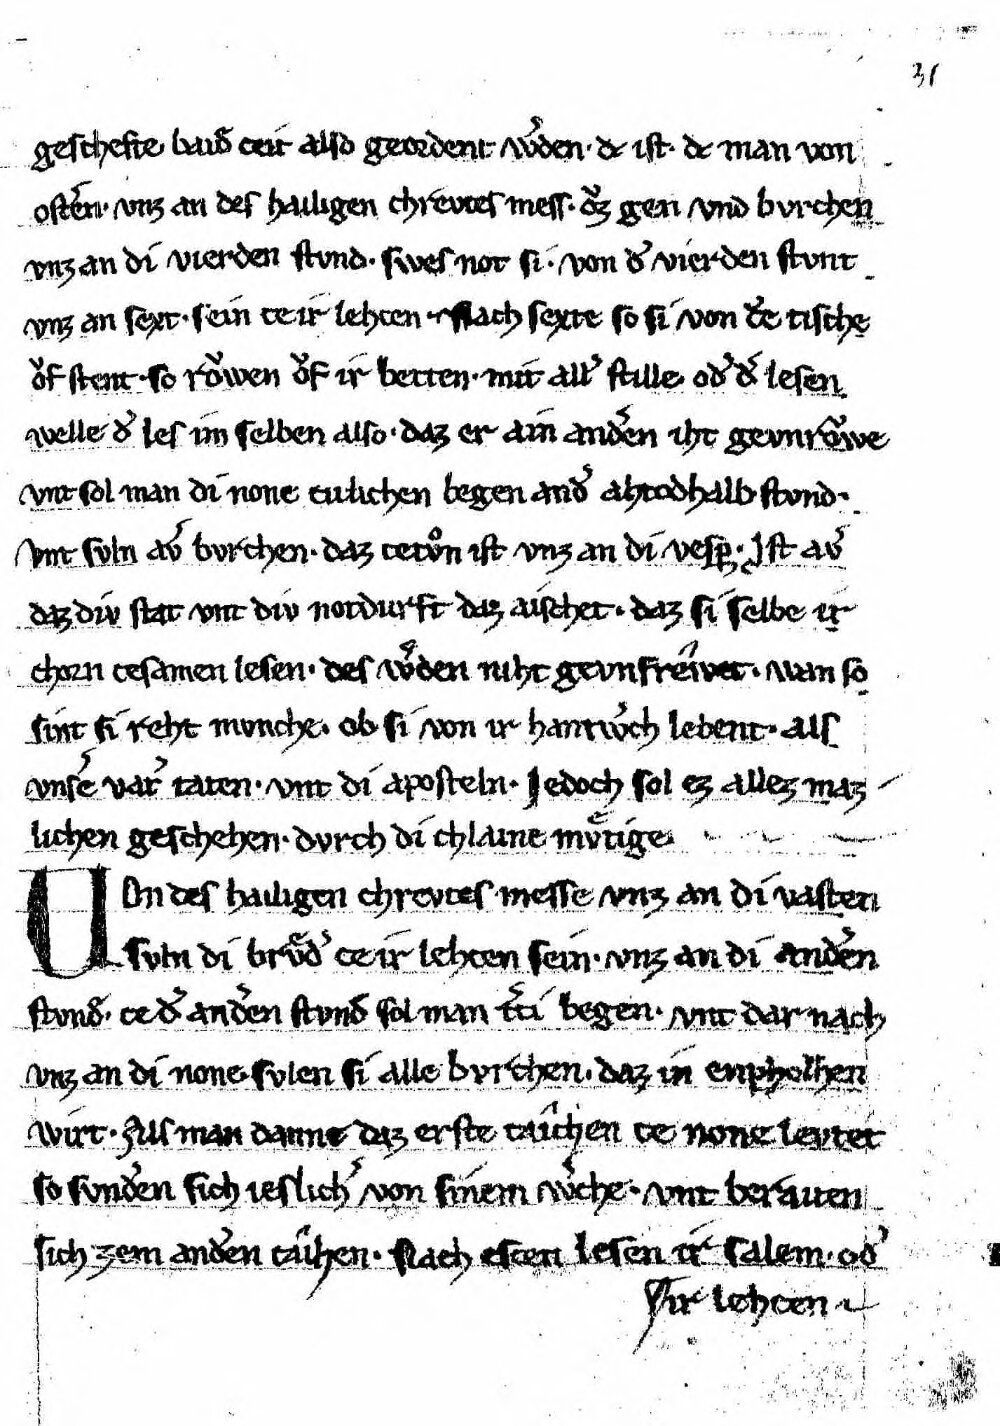 31
geschefte. baid͛ ceit also geordent wͤden· dc ist· dc man von
osten͛· vnz an des hailigen chrevtes mess· ovͮz gen vnd vvrchen
vnz an di vierden stvnd· swes not si· von d͛ vierden stvnt
vnz an sext· sein ce ir lehcen· Nach sexte so si von dͤe tische
vͦf stent· so rvͦwen vͦf ir betten· mit all͛ stille. od͛ d͛ lesen
welle d͛ les im selben also· daz er ain and͛en iht gevnrvͦwe
vnt sol man di none cuilichen begen and͛ ahtodhalb stvnd·
vnt svln av͛ vvrchen· daz cetvͦn ist vnz an di vesp̲· Jst av͛
daz div stat vnt div notdurft daz aischet· daz si selbe ir
chorn cesamen lesen· des w͛den niht gevnfrêwet· wan so
sint si reht mvnche. ob si von ir hantw͛ch lebent· als
vns͛e vat͛ taten· vnt di aposteln· Jedoch sol ez allez maz
lichen geschehen· dvrch di chlaine mvͤtige.
VOn des hailigen chrevces messe vnz an di vasten
svln di brvͤd͛ ce ir lehcen sein· vnz an di and͛en
stvnd͛· ce d͛ and͛en stvnd͛ sol man t͛ci begen· vnt dar nach
vnz an di none svlen si alle vvrchen· daz in enpholhen
wirt· Als man danne daz erste caîchen ce none levtet
so svnd͛en sich ieslich͛ von sinem w͛che· vnt beraiten
sich zem and͛en caîhen· Nach escen lesen ir salem· od͛
ir lehcen